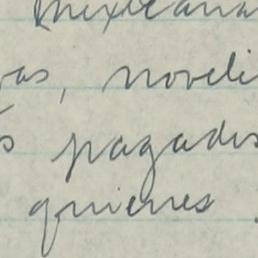 mexicana
as, noveli
s pagadis
quienes